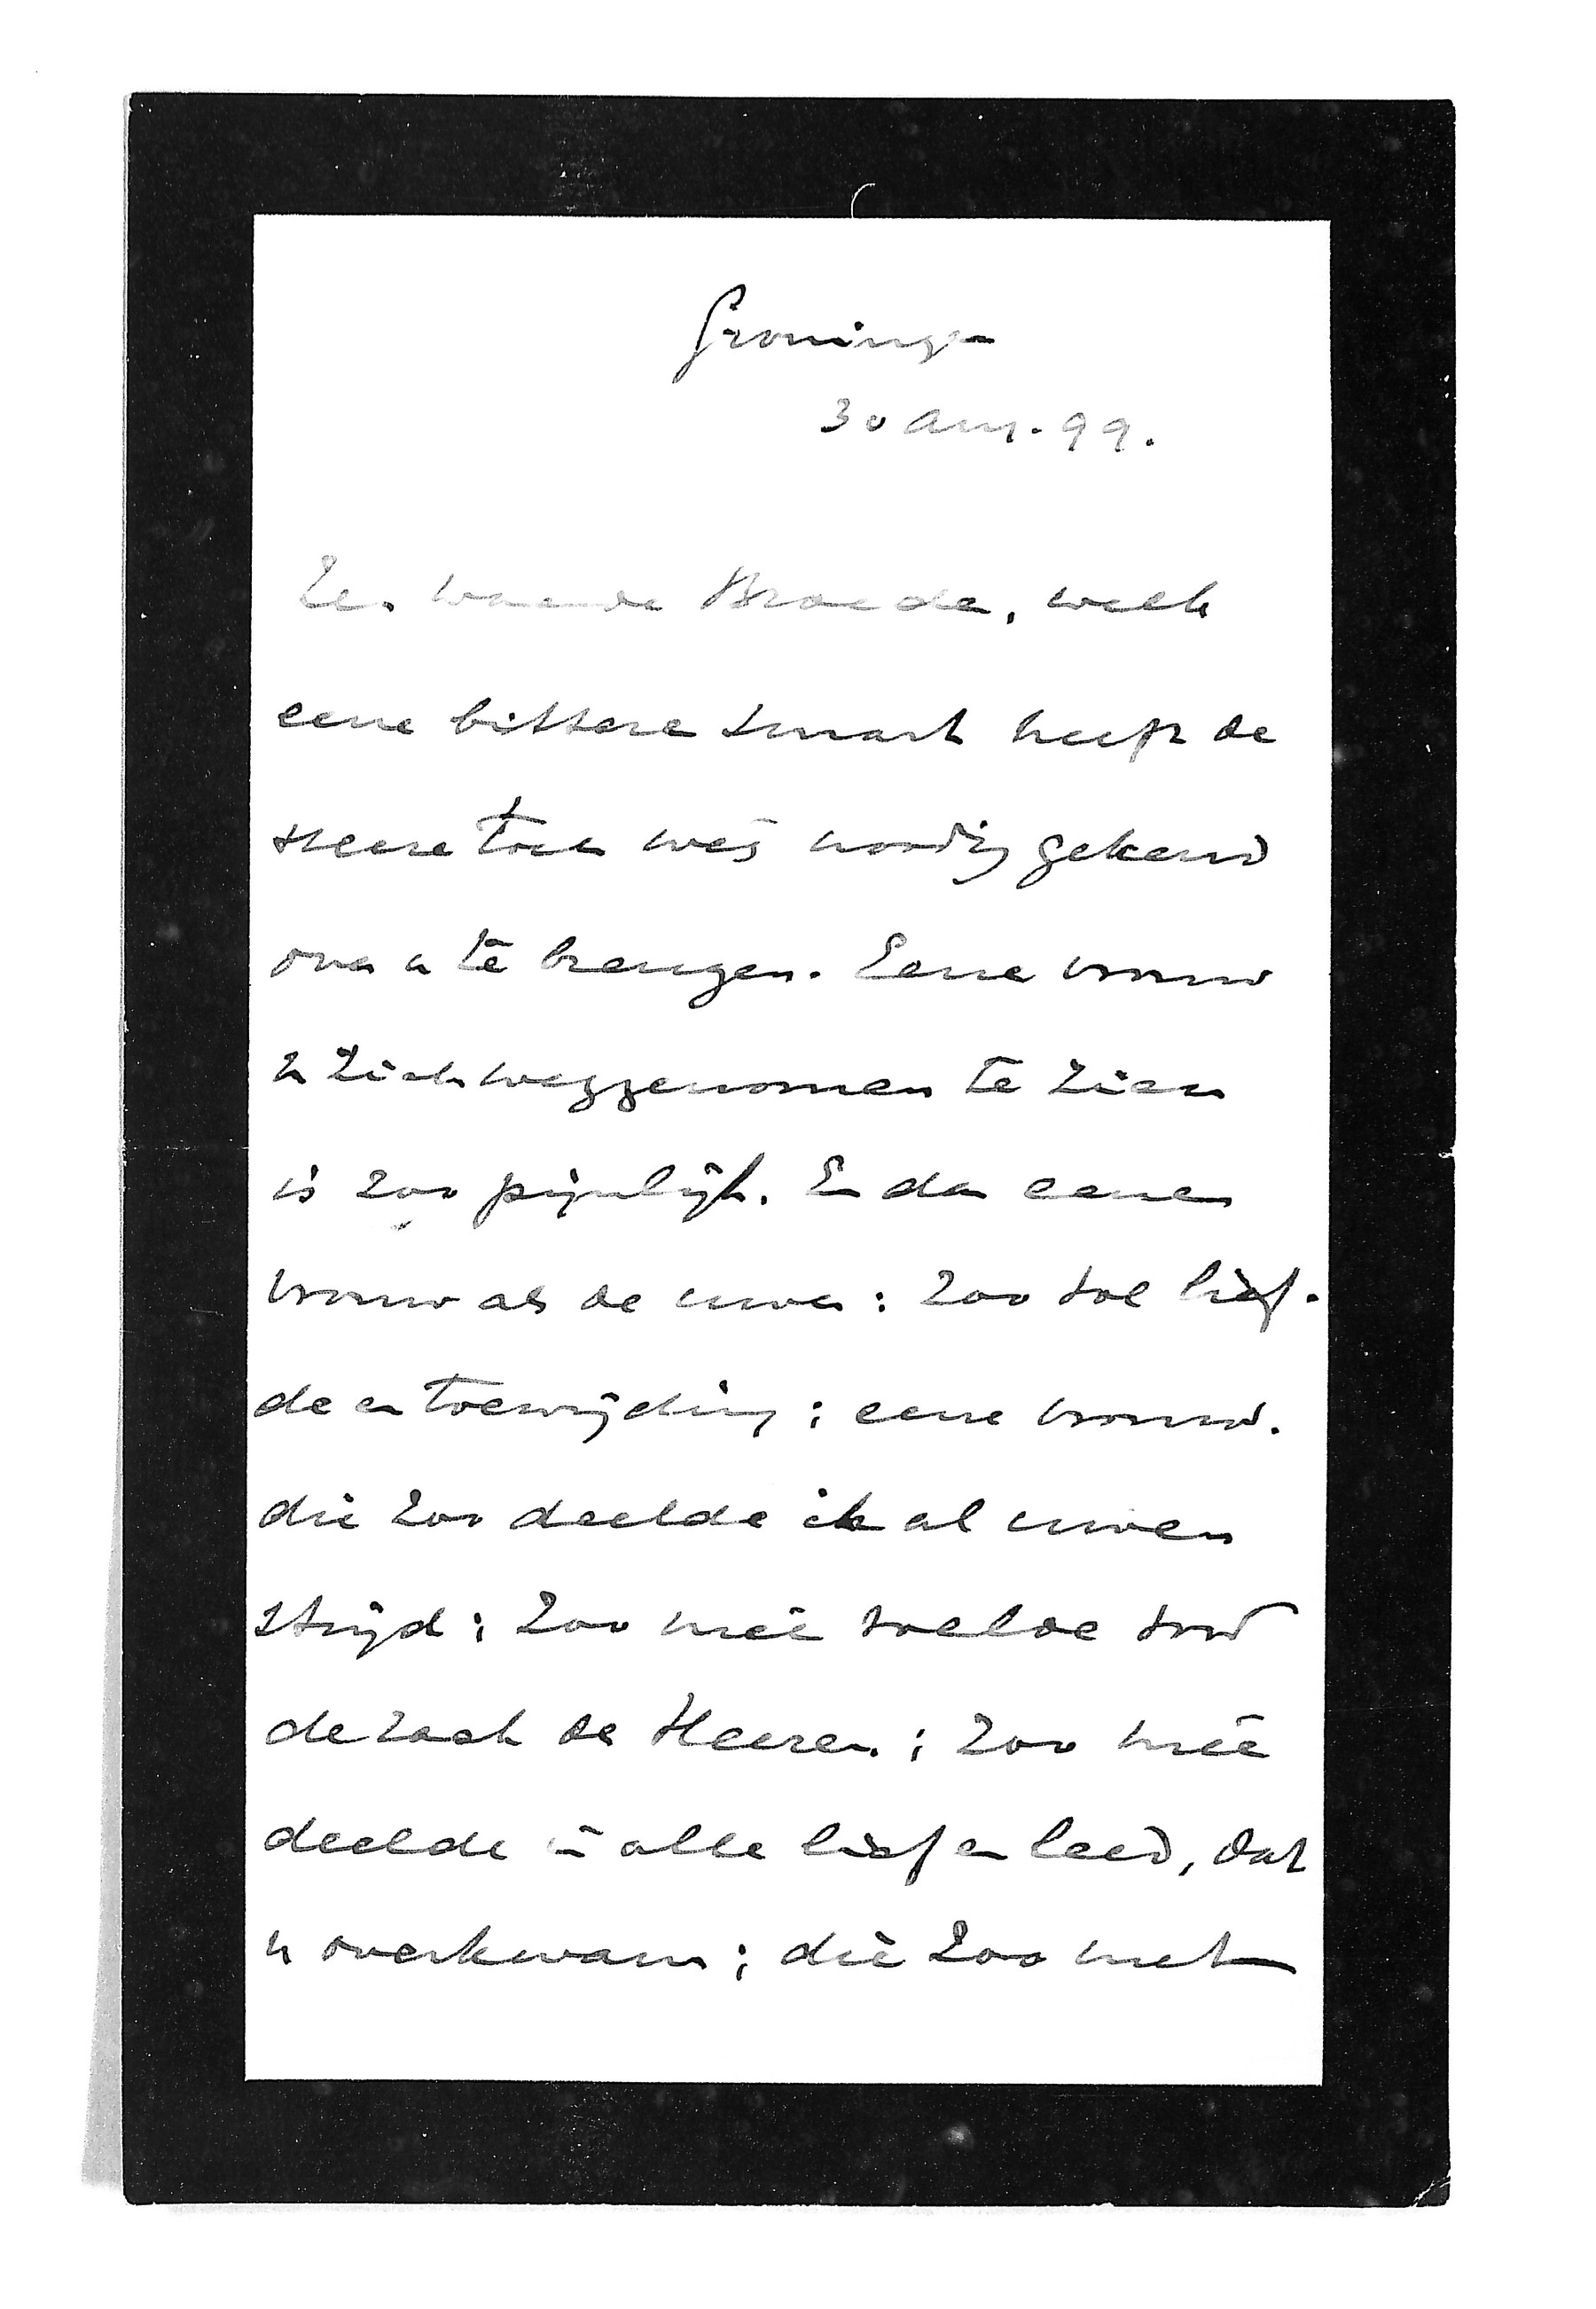 Groningen
30 Aug. 99.
Zeer waarde Broeder, welk
eene bittere smart heeft de
Heere toch weêr noodig gekend
over u te brengen. Eene vrouw
zich weggenomen te zien
is zoo pijnlijk. En dan eene
vrouw als de uwe: zoo vol lief-
de en toewijding; eene vrouw.
die zoo deelde in al uwen
strijd; zoo meê voelde voor
de zaak des Heeren; zoo meê
deelde in alle lief en leed, dat
u overkwam; die zoo met